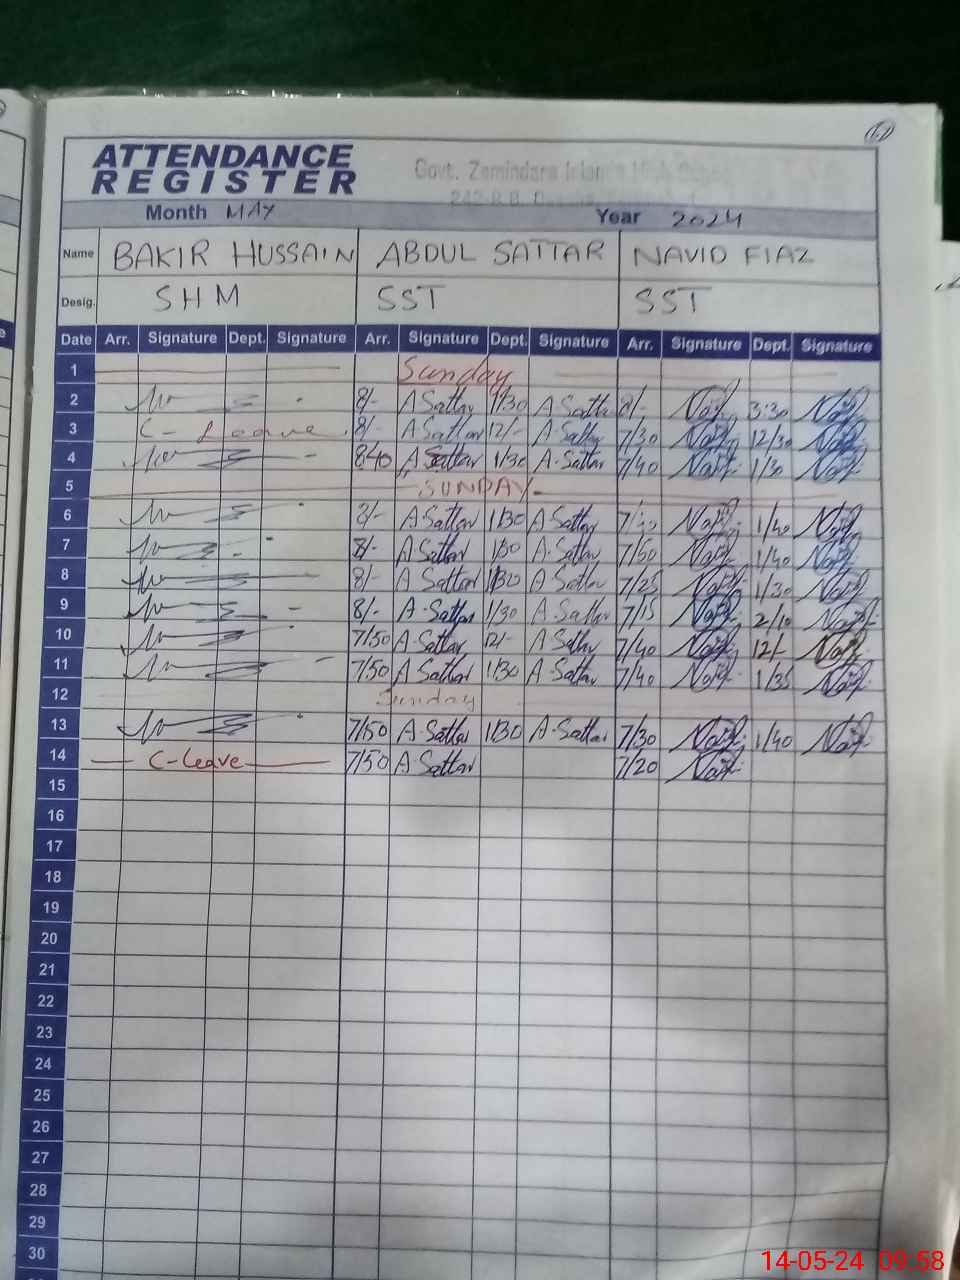 ATTENDANCE
REGISTER
Govt. Zamindara Islamia High
Month MAY Year 2024
Name BAKIR HUSSAIN ABDUL SATTAR NAVID FIAZ
Desig. SHM SST SST
Date Arr. Signature Dept. Signature Arr. Signature Dept. Signature Arr. Signature Dept. Signature
1 Sunday
2 8/- A Sattar 1/30 A Sattar 8/- 3:30
3 C- Leave 8/- A Sattar 12/- A-Sattar 7/30 12/30
4 8:40 A Sattar 1/30 A-Sattar 7/40 1/30
5 SUNDAY
6 8/- A Sattar 1/30 A Sattar 1/40
7 8/- A Sattar 1/30 A-Sattar 7/50 1/40
8 8/- A-Sattar 1/30 A Sattar 7/25 1/30
9 8/- A-Sattar 1/30 A-Sattar 7/15 2/10
10 7/50 A-Sattar 12/- A Sattar 7/40 12/-
11 7/50 A-Sattar 1/30 A-Sattar 7/40 1/35
12 Sunday
13 7/50 A-Sattar 1/30 A-Sattar 7/30 1/40
14 C-Leave 7/50 A-Sattar 7/20
15
16
17
18
19
20
21
22
23
24
25
26
27
28
29
30
14-05-24 09:58